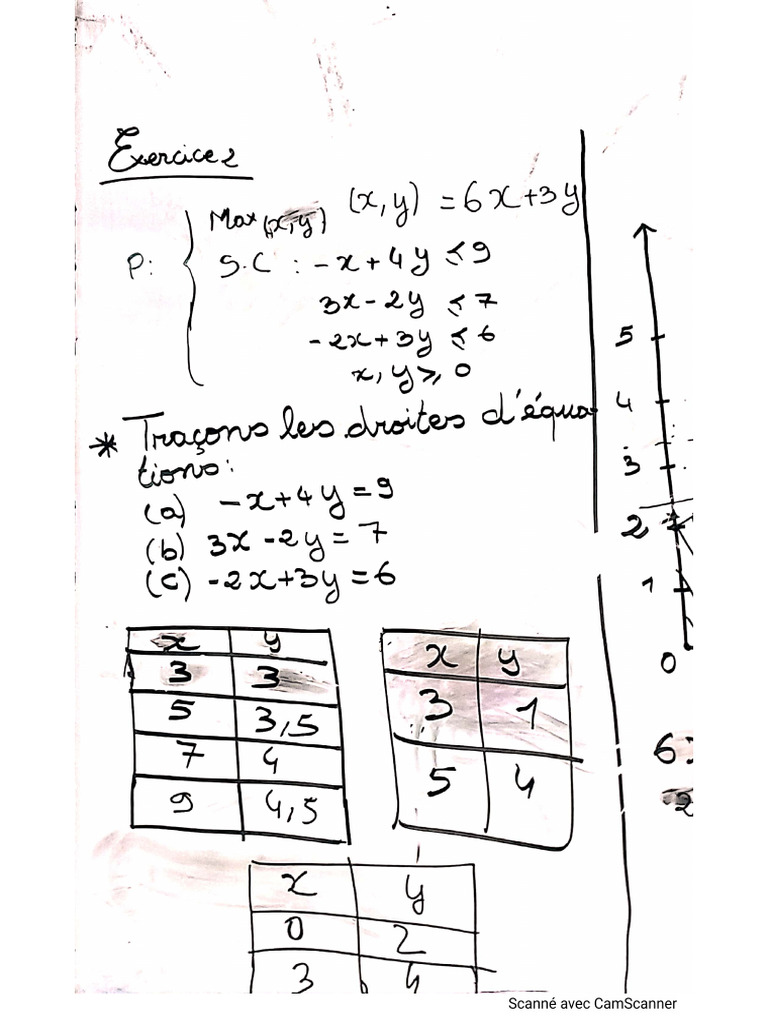 Exercice 2
P: { Max(x,y) (x,y) = 6x+3y
S.C : -x + 4y ≤ 9
3x - 2y ≤ 7
-2x + 3y ≤ 6
x, y ≥ 0
* Traçons les droites d'équa-
tions:
(a) -x + 4y = 9
(b) 3x - 2y = 7
(c) -2x + 3y = 6
x y
3 3
5 3,5
7 4
9 4,5
x y
3 1
5 4
x y
0 2
3 4
5
4
3
2
1
0
6
2
Scanné avec CamScanner